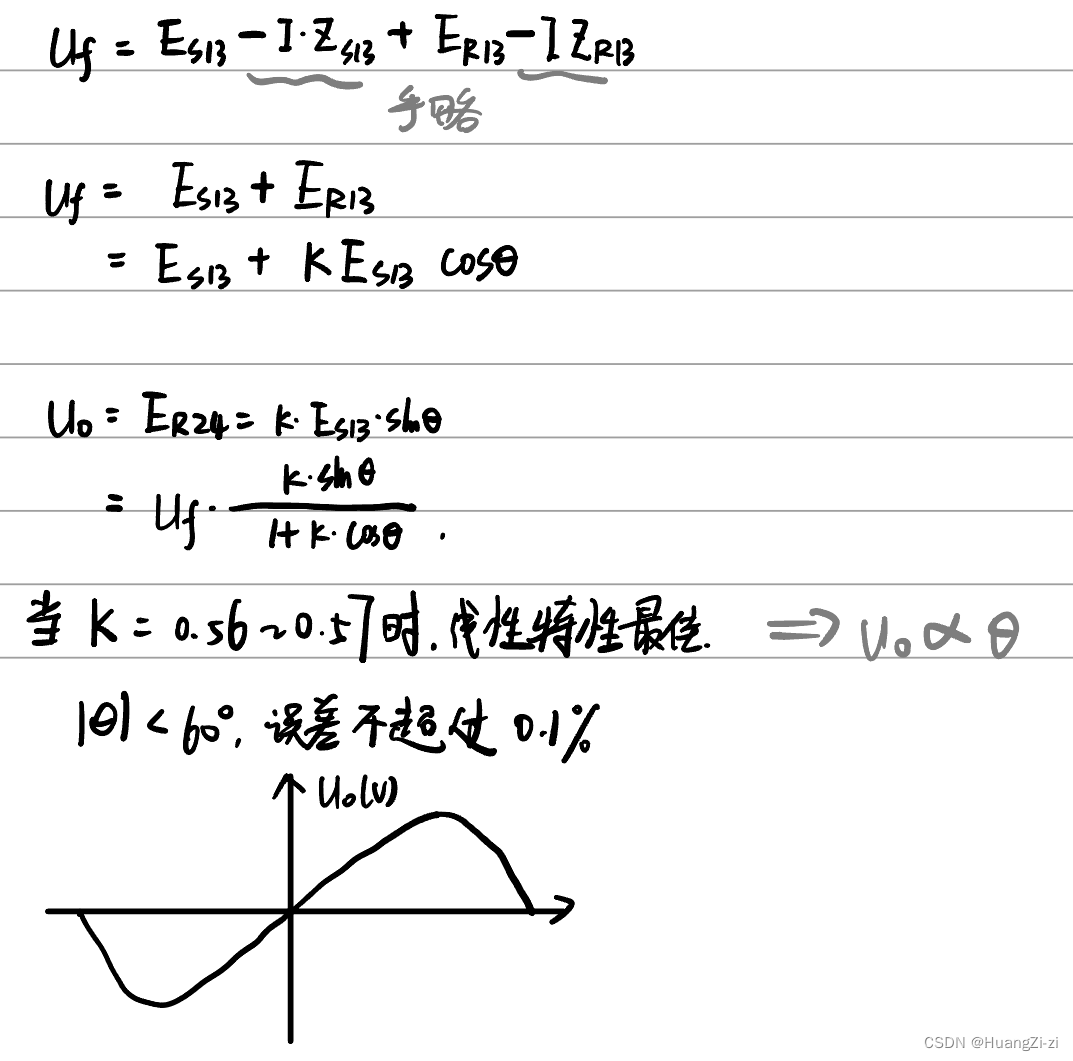 Uf = ES13 - I·ZS13 + ER13 - IZR13
乎略
Uf = ES13 + ER13
= ES13 + K ES13 cosθ
U0 = ER24 = K· ES13 ·sinθ
= Uf · K·sinθ / 1+K·cosθ .
当 K = 0.56~0.57时,线性特性最佳. ⇒ U0 ∝ θ
|θ| < 60°, 误差不超过 0.1%
U0(V)
CSDN @HuangZi-zi